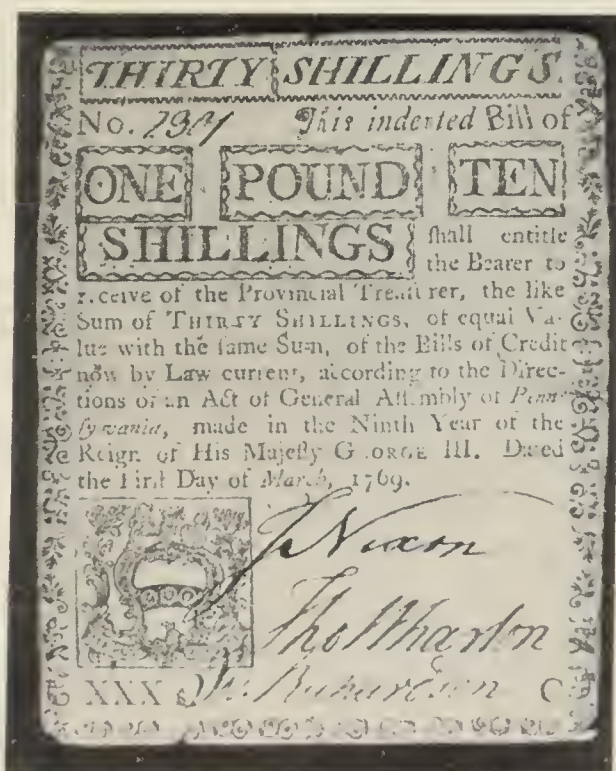 THIRTY SHILLINGS.
No. This indented Bill of
ONE POUND TEN
SHILLINGS ſhall entitle
the Bearer to
receive of the Provincial Treaſurer, the like
Sum of THIRTY SHILLINGS, of equal Va-
lue with the ſame Sum, of the Bills of Credit
now by Law current, according to the Direc-
tions of an Act of General Aſſembly of Penn-
ſylvania, made in the Ninth Year of the
Reign of His Majeſty GEORGE III. Dated
the Firſt Day of March, 1769.
J Nixon
Tho Wharton
XXX Richardson C